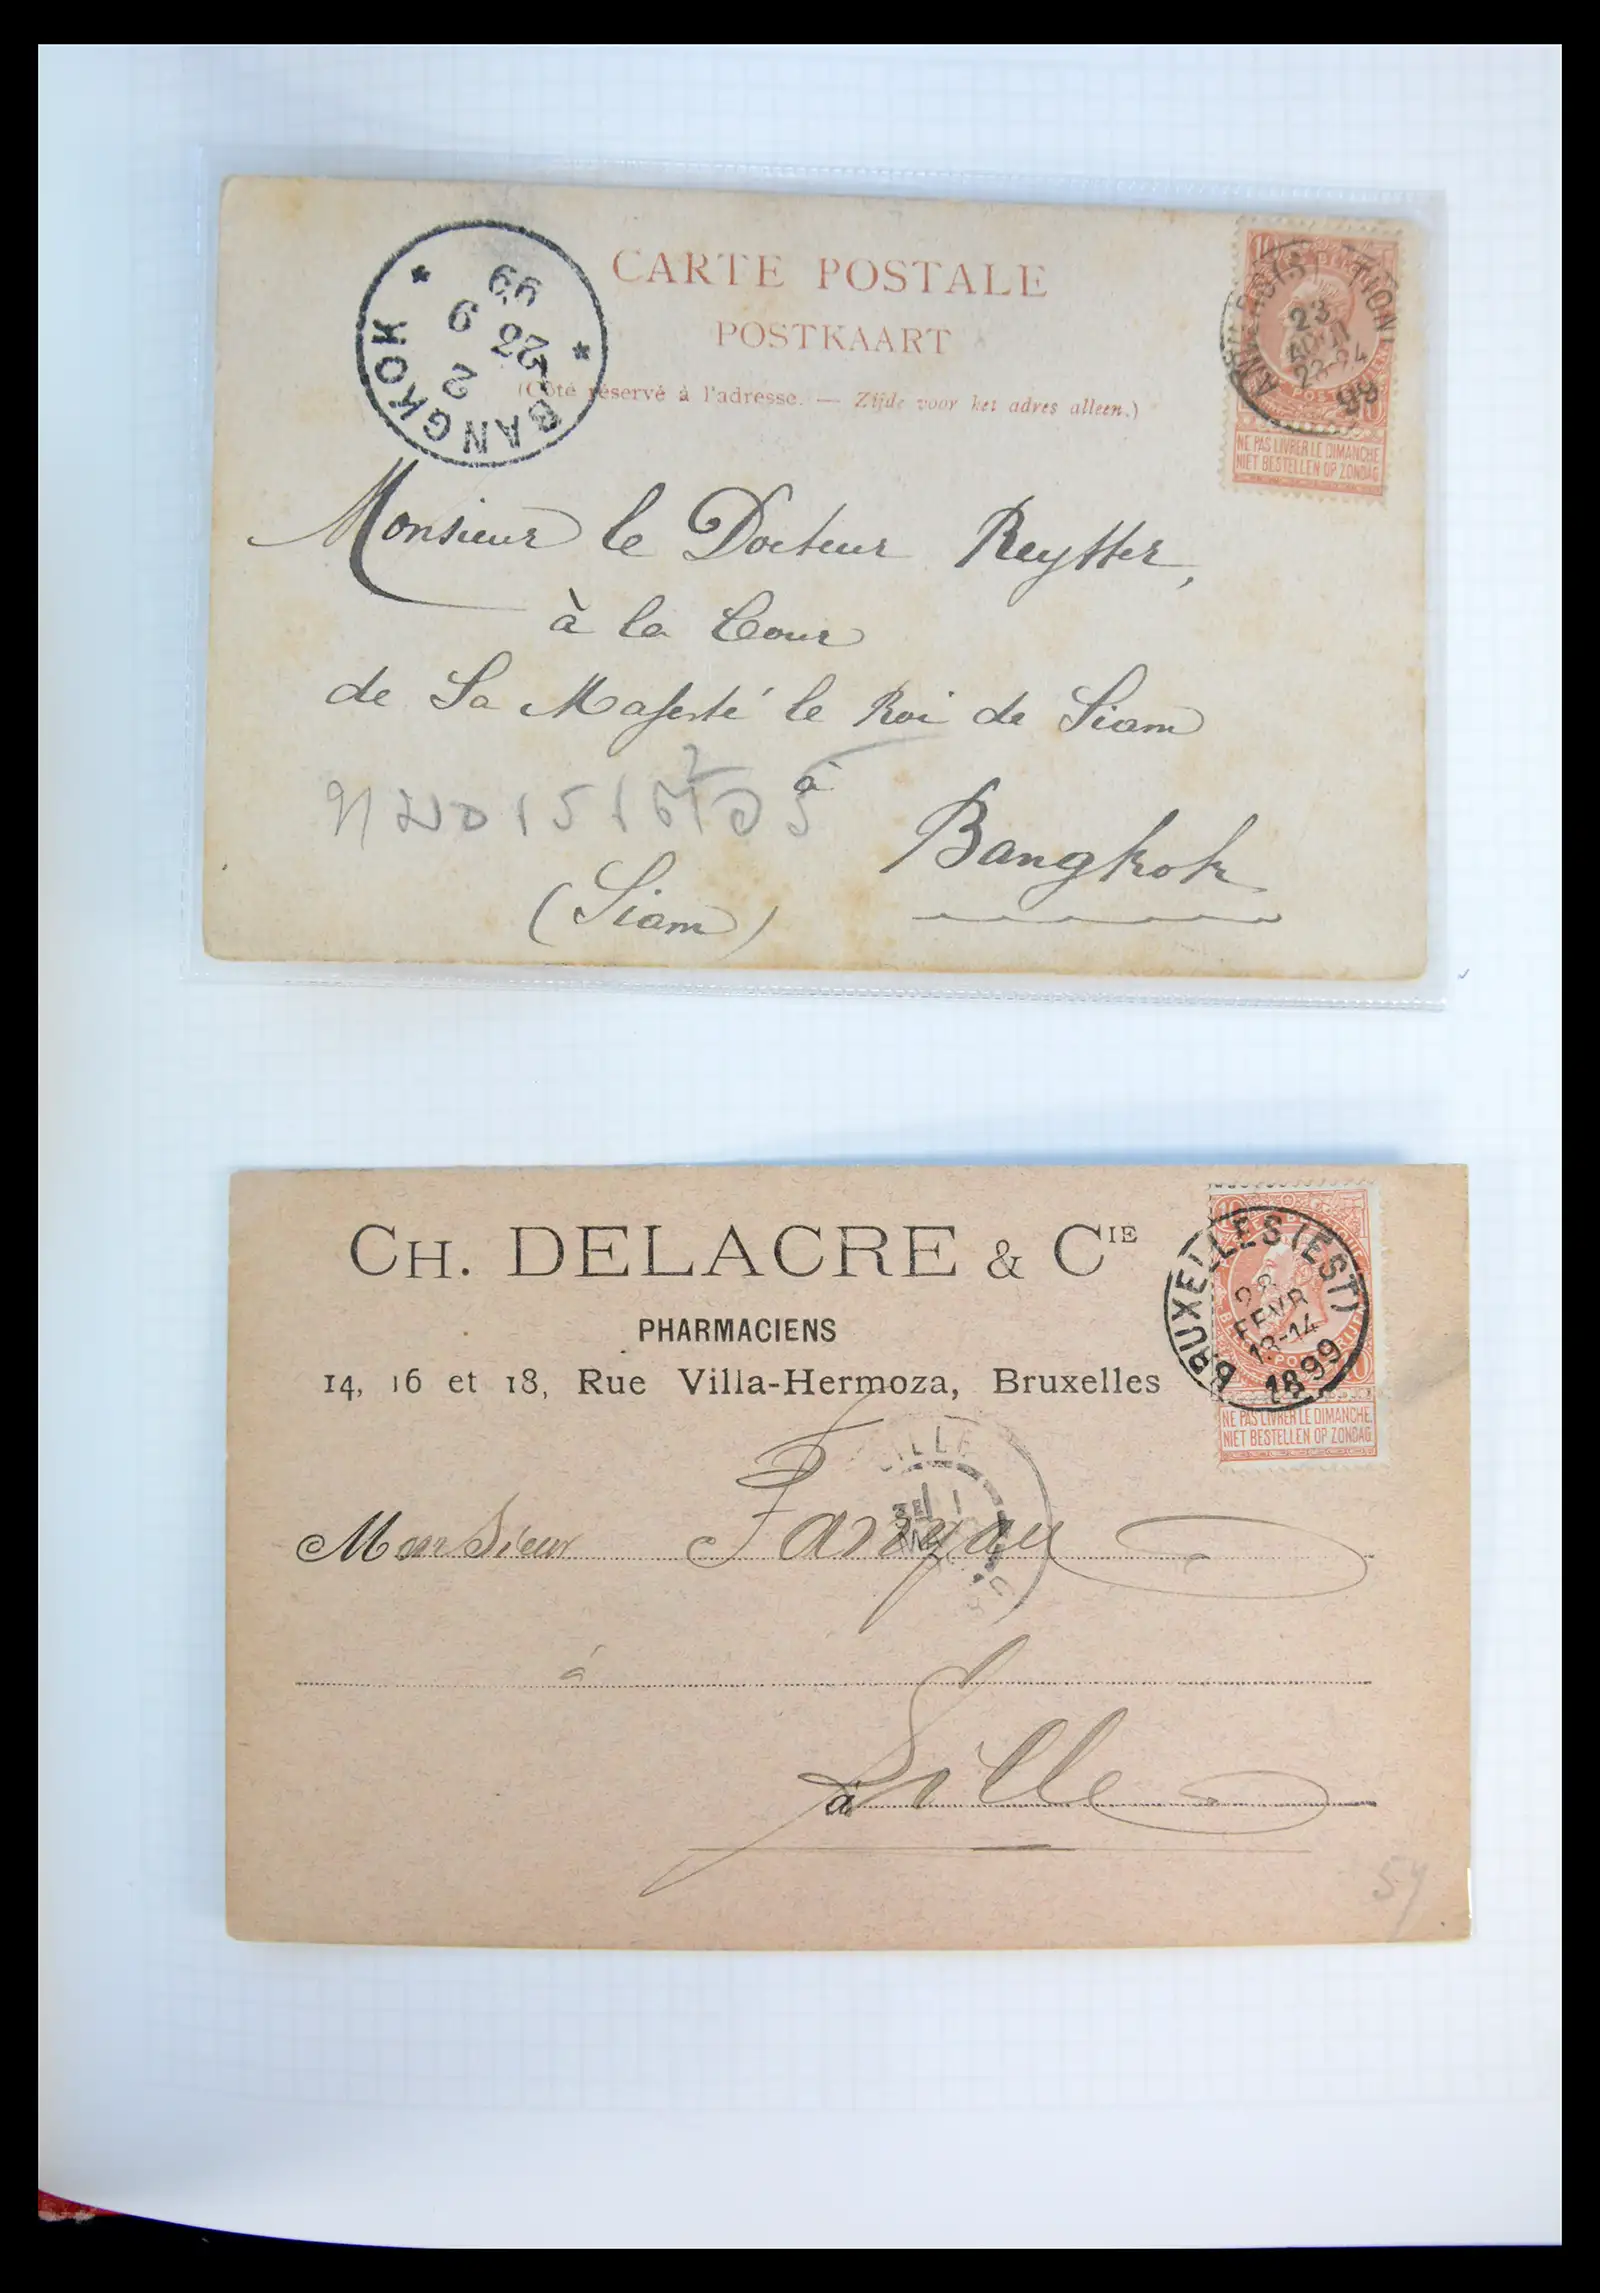 CARTE POSTALE
POSTKAART
(Côté réservé à l'adresse. — Zijde voor het adres alleen.)
BANGKOK
2 9 23 99
BANGKOK
ANVERS (STATION)
23
AOUT
99
10
NE PAS LIVRER LE DIMANCHE
NIET BESTELLEN OP ZONDAG
Monsieur le Docteur Reytter,
à la Cour
de Sa Majesté le Roi de Siam
à
Bangkok
(Siam)
CH. DELACRE & CIE
PHARMACIENS
14, 16 et 18, Rue Villa-Hermoza, Bruxelles
BRUXELLES (EST)
28
FEVR
13-14
1899
10
NE PAS LIVRER LE DIMANCHE
NIET BESTELLEN OP ZONDAG
LILLE
Monsieur Fanyau
à
à Lille
54